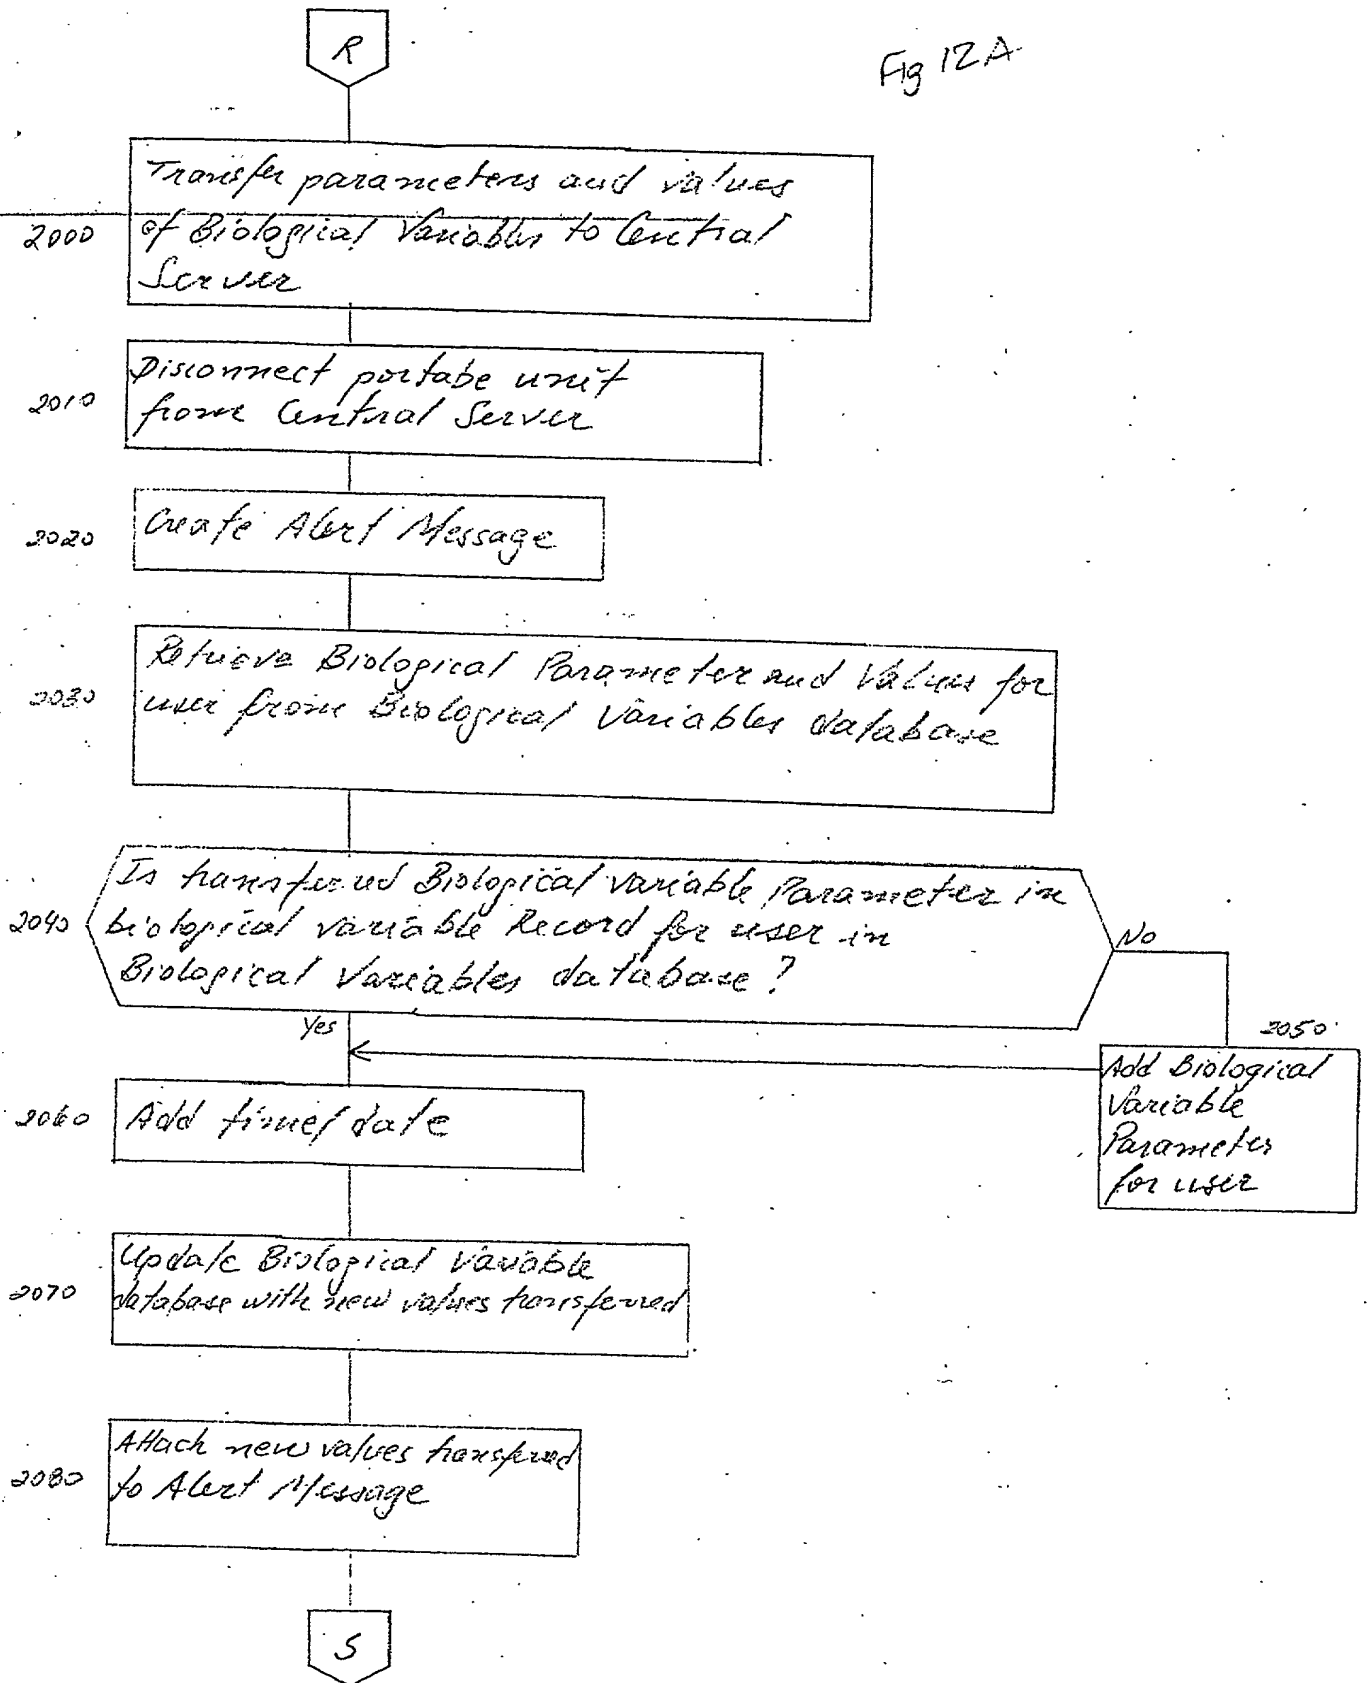 R
Fig 12A
2000
Transfer parameters and values
of Biological Variables to Central
Server
2010
Disconnect portabe unit
from Central Server
2020
Create Alert Message
2030
Retrieve Biological Parameter and Values for
user from Biological Variables database
2040
Is transferred Biological variable Parameter in
biological variable Record for user in
Biological Variables database?
No
Yes
2050
Add Biological
Variable
Parameter
for user
2060
Add time/date
2070
Update Biological Variable
database with new values transferred
2080
Attach new values transferred
to Alert Message
S